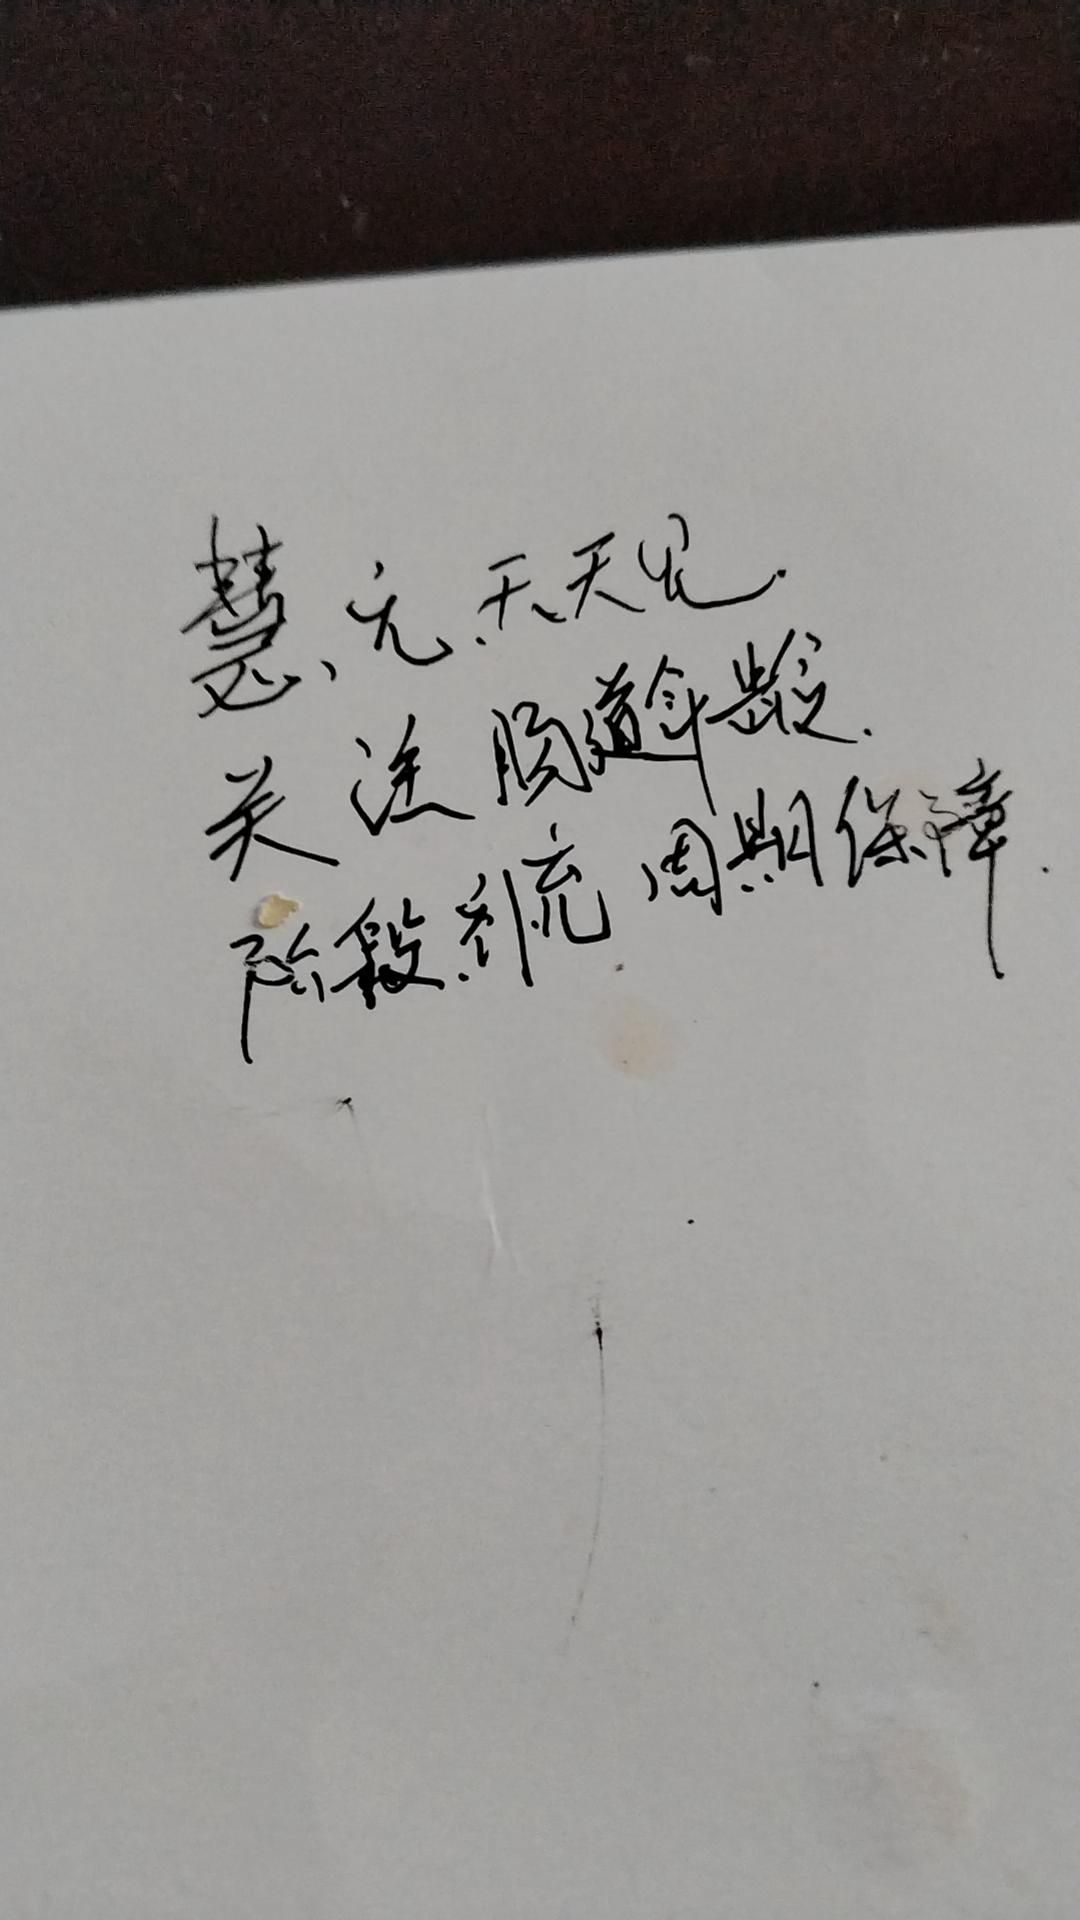 慧、元、天天见.
关注肠道年龄.
阶段.补充 周期保障.